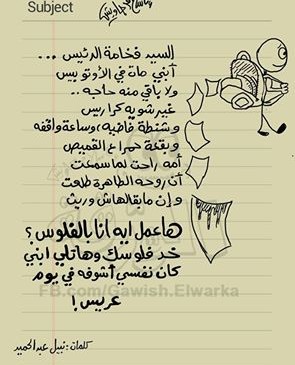 Subject
السيد فخامة الرئيس ...
أبني مات في الأوتوبيس
ولا باقي منه حاجه ..
غير شوية كراريس
وشنطة فاضيه، وساعة واقفه
وبقعة حمرا ع القميص
أمه راحت لما سمعت
أن روحه الطاهرة طلعت
وإن مابقالهاش وريث
هاعمل ايه انا بالفلوس؟
خد فلوسك وهاتلي ابني
كان نفسي أشوفه في يوم
عريس!
FB.com/Gawish.Elwarka
كلمات: نبيل عبدالحميد